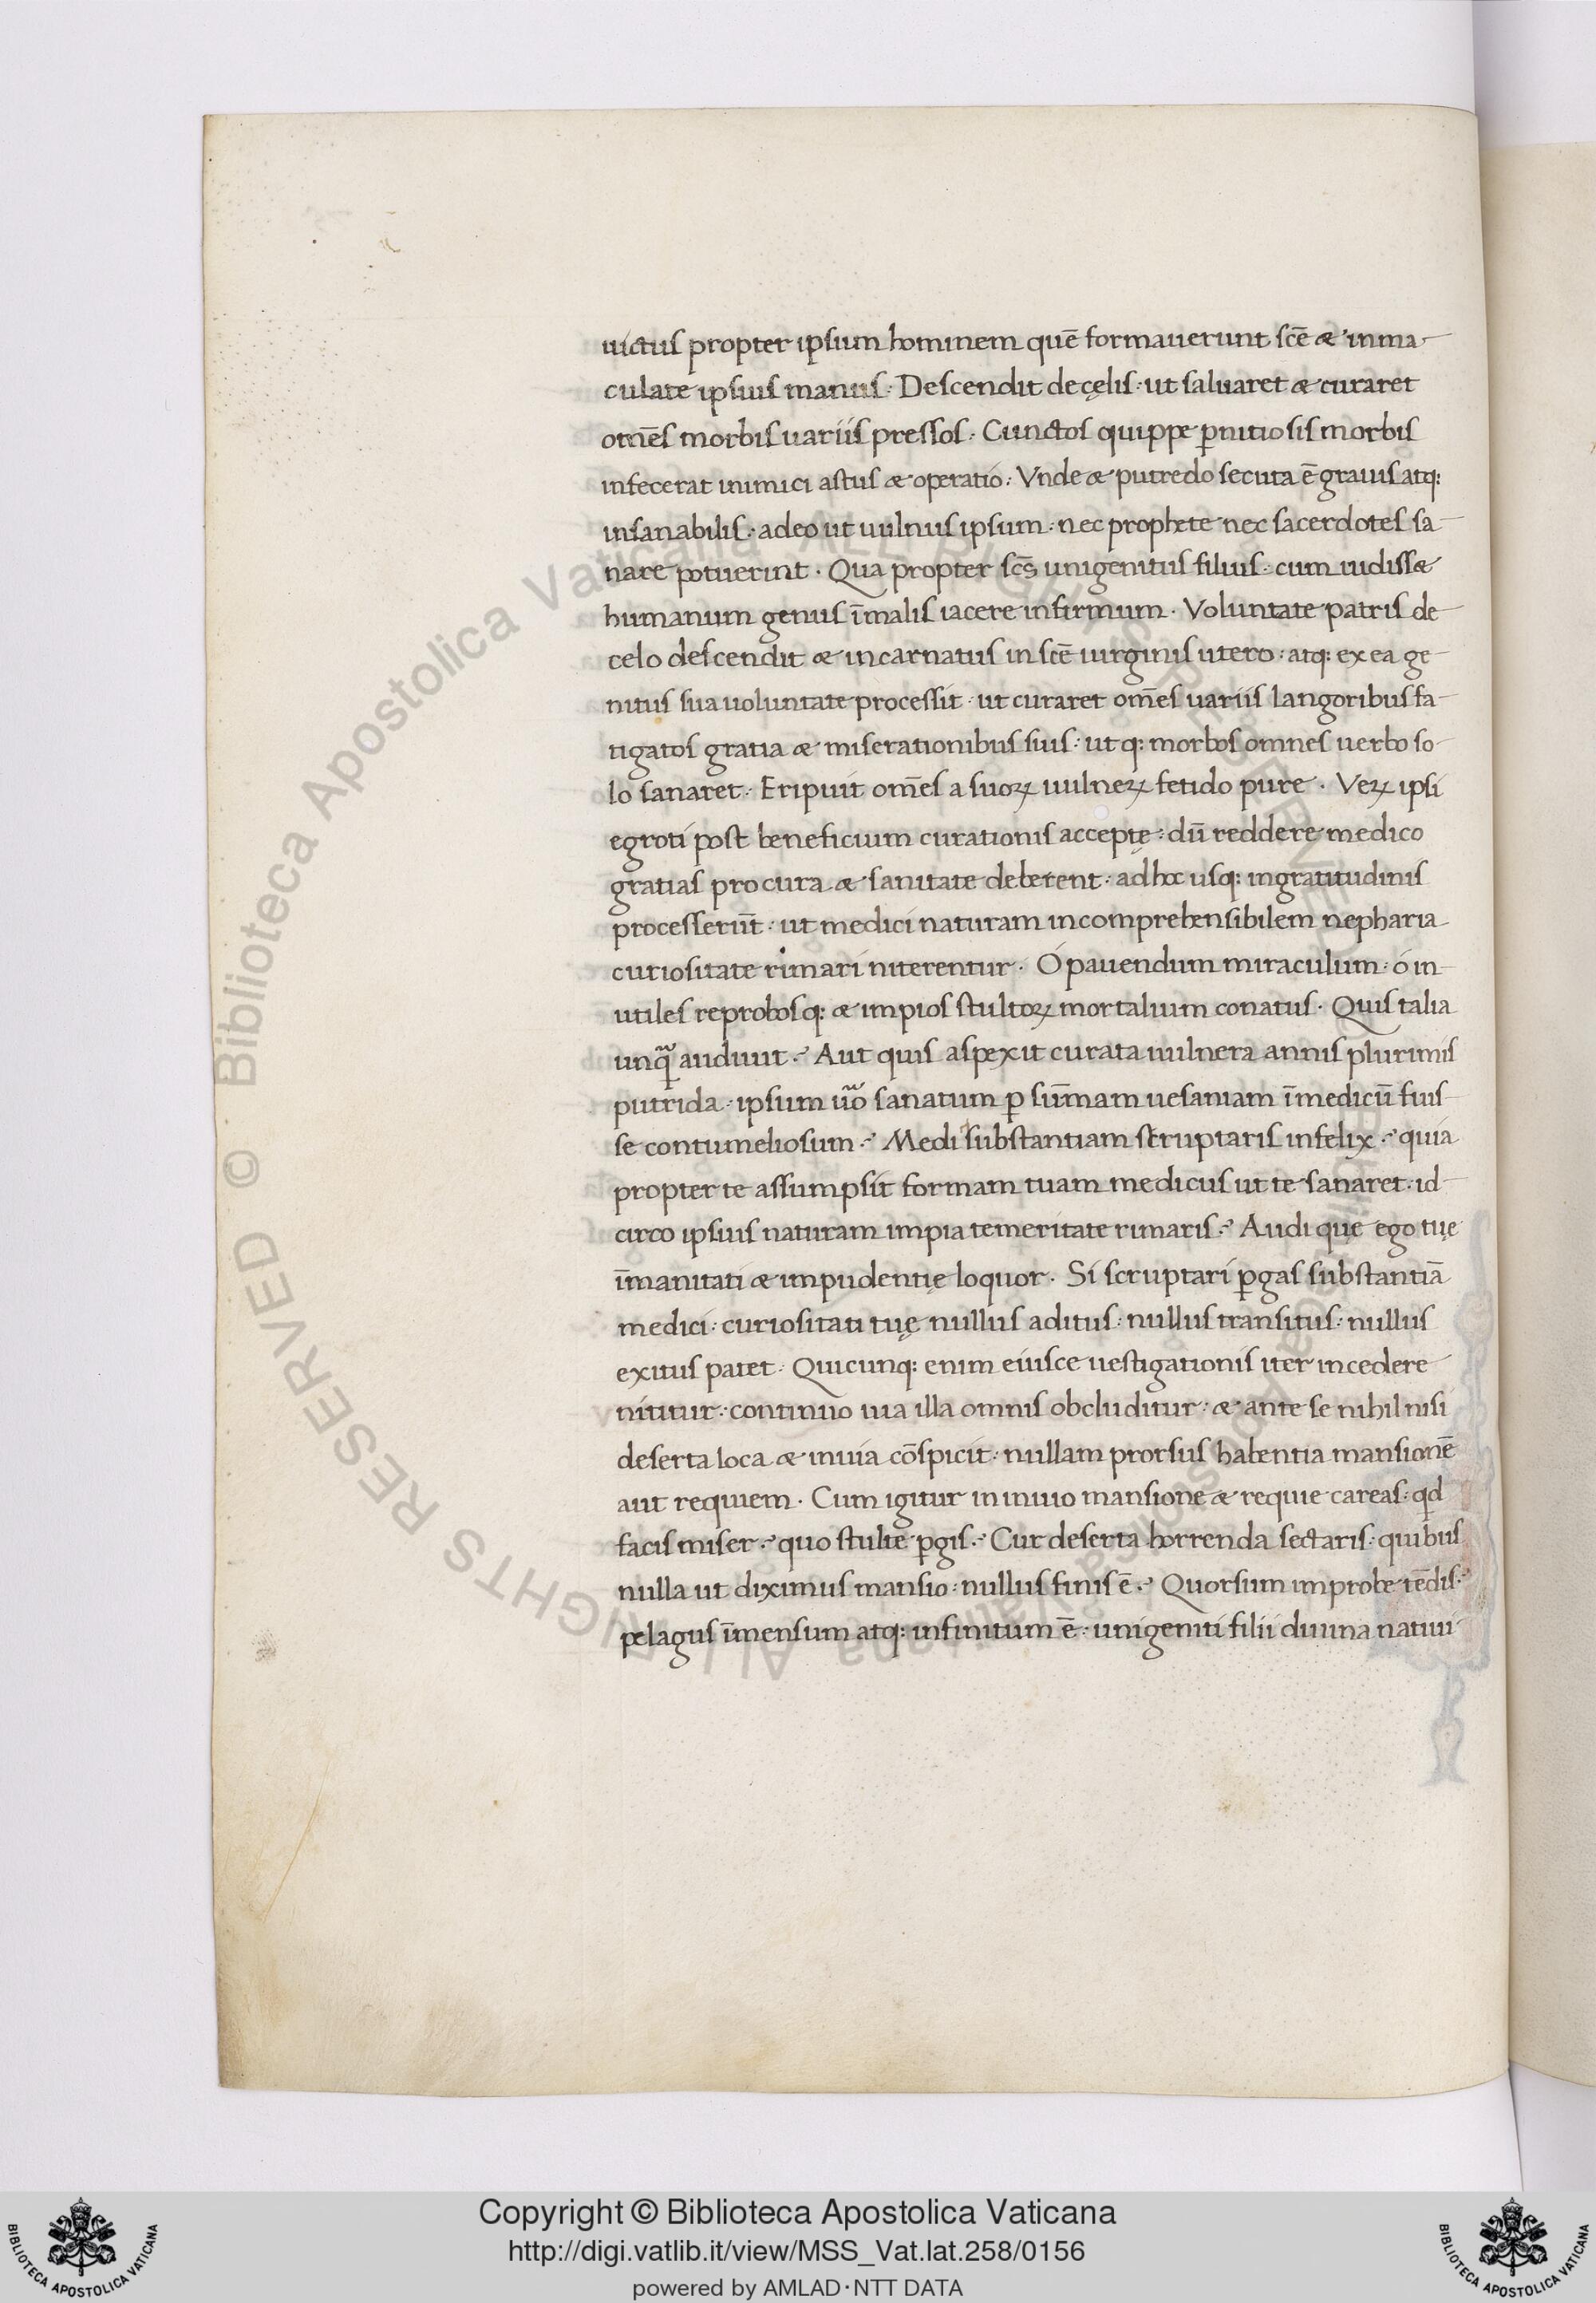 uictus propter ipsum hominem quē formauerunt scē & inma-
culate ipsius manus. Descendit de cęlis: ut saluaret & curaret
omēs morbis uariis pressos. Cunctos quippe p̱nitiosis morbis
infecerat inimici astus & operatio: Vnde & putredo secuta ē grauis atq:
insanabilis: adeo ut uulnus ipsum: nec prophete nec sacerdotes sa-
nare potuerint. Qua propter scs̄ unigenitus filius: cum uidiss&
humanum genus ī malis iacere infirmum. Voluntate patris de
celo descendit & incarnatus in scē uirginis utero: atq: ex ea ge-
nitus sua uoluntate processit: ut curaret om̄es uariis langoribus fa-
tigatos gratia & miserationibus suis: utq: morbos omnes uerbo so-
lo sanaret. Eripuit om̄es a suoꝝ uulneꝝ fetido pure. Veꝝ ipsi
egroti post beneficium curationis acceptę: dū reddere medico
gratias pro cura & sanitate deberent: ad hoc usq: ingratitudinis
processerūt: ut medici naturam incomprehensibilem nepharia
curiositate rimari niterentur. Ó pauendum miraculum: ó in-
utiles reprobosq: & impios stultoꝝ mortalium conatus. Quis talia
unq̃ audiuit? Aut quis aspexit curata uulnera annis plurimis
putrida: ipsum ũo sanatum ꝑ sum̄am uesaniam ī medicū fuis-
se contumeliosum? Medi substantiam scruptaris infelix? quia
propter te assumpsit formam tuam medicus ut te sanaret: id-
circo ipsius naturam impia temeritate rimaris? Audi quę ego tuę
īmanitati & impudentię loquor. Si scruptari ꝑgas substantiā
medici: curiositati tuę nullus aditus: nullus transitus: nullus
exitus patet. Quicunq: enim eiusce uestigationis iter incedere
nititur: continuo uia illa omnis obcluditur: & ante se nihil nisi
deserta loca & inuia cōspicit: nullam prorsus habentia mansionē
aut requiem. Cum igitur in inuio mansione & requie careas: qd
facis miser? quo stulte ꝑgis? Cur deserta horrenda sectaris: quibus
nulla ut diximus mansio: nullus finis ē? Quorsum improbe tēdis?
pelagus īmensum atq: infinitum ē: unigeniti filii diuina natiui
Copyright © Biblioteca Apostolica Vaticana
http://digi.vatlib.it/view/MSS_Vat.lat.258/0156
powered by AMLAD·NTT DATA
BIBLIOTECA APOSTOLICA VATICANA
BIBLIOTECA APOSTOLICA VATICANA